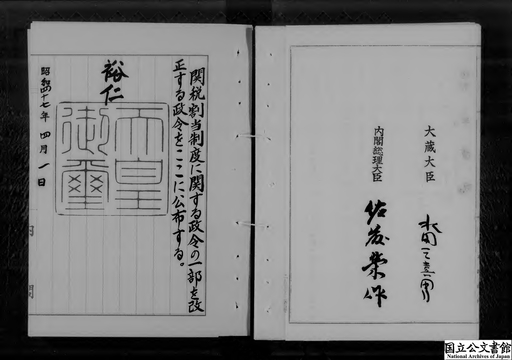 大蔵大臣
水田三喜男
内閣総理大臣
佐藤榮作
関税割当制度に関する政令の一部を改
正する政令をここに公布する。
裕仁
天皇
御璽
昭和四十七年四月一日
国立公文書館
National Archives of Japan